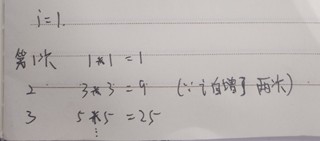 i=1.
第1次 1*1=1
2 3*3=9 (∵i自增了两次)
3 5*5=25
⋮